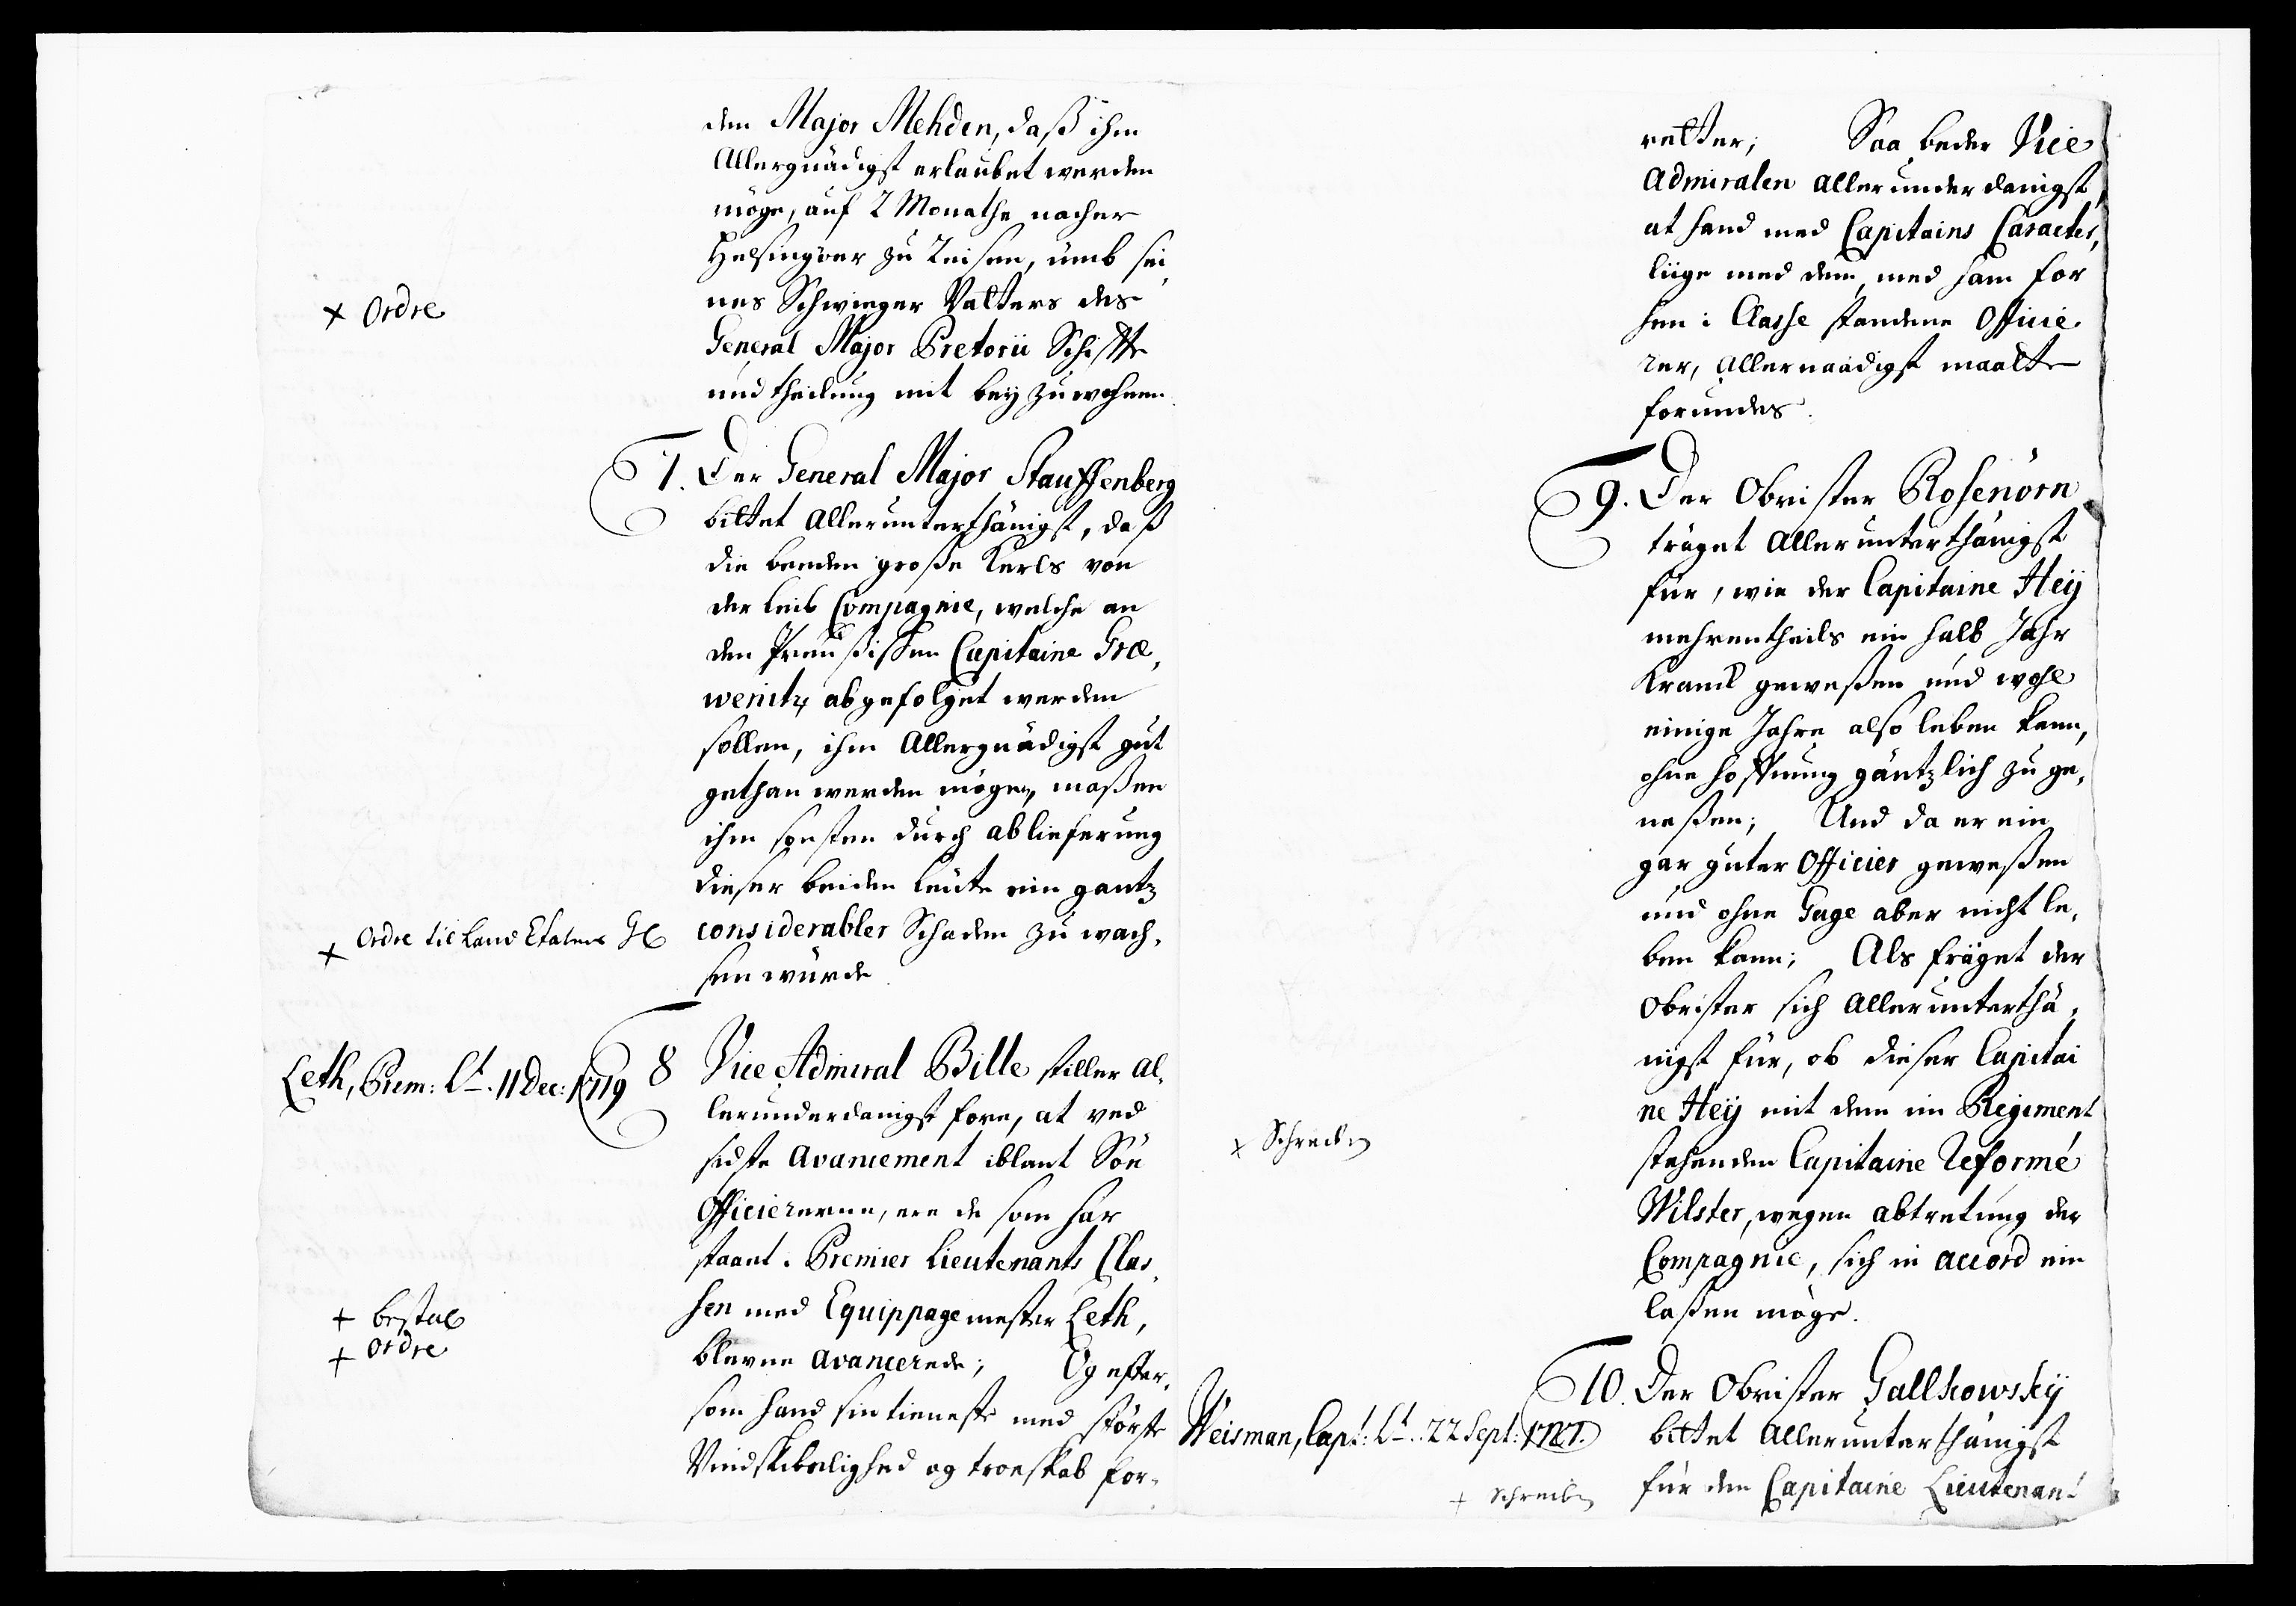 den Major Mehden, daß ihm
Allergnädigst erlaubet werden
möge, auf 2 Monathe nacher
Helsingöer zu Reisen, umb sei,
nes Schwieger Vatters des
General Major Pretorii Schiffte
und theilung mit bey zu wohnen.
x Ordre
7. Der General Major Stauffenberg
bittet Allerunterthänigst, daß
die beeden große Kerls von
der Leib Compagnie, welche an
den Preußischen Capitaine Græ,
wenitz abgefolget werden
sollen, ihm Allergnädigst gut
gethan werden mögen, maßen
ihm sonsten durch ablieferung
dieser beiden Leute ein gantz
considerabler Schaden zu wach,
sen würde.
x Ordre til Land Etatens GC
8 Vice Admiral Bille stiller al,
lerunderdanigst fore, at ved
sidste Avancement iblant Söe
Officiererne, ere de som har
staaet i Premier Lieutenants Clas,
sen med Equippagemester Leth,
blevne avancerede; Og effter,
som hand sin tieneste med störste
Vindskibelighed og troeskab for,
Leth, Prem: Lt. 11 Dec: 1719
+ bestall
+ Ordre
retter; Saa beder Vice
Admiralen allerunderdanigst,
at hand med Capitains Caracter,
liige med dem, med ham for
hen i Classe standene Officie,
rer, Allernaadigst maatte
forundes.
9. Der Obrister Rosenörn
träget Allerunterthänigst
für, wie der Capitaine Heÿ
mehrentheils ein halb Jahr
Kranck geweßen und wohl
einige Jahre also leben kann,
ohne hoffnung gäntzlich zu ge,
neßen; Und da er ein
gar guter Officier geweßen
und ohne Gage aber nicht le,
ben kann; Als fräget der
Obrister sich Allerunterthä,
nigst für, ob dieser Capitai
ne Heÿ mit dem im Regiment
stehenden Capitaine Reformé
Wilster, wegen abtretung der
Compagnie, sich in accord ein
laßen möge.
x Schreiben
10. Der Obrister Gallkowskÿ
bittet Allerunterthänigst
für den Capitaine Lieutenant
Weisman, Capt: Lt. 22 Sept: 1721.
+ Schreiben